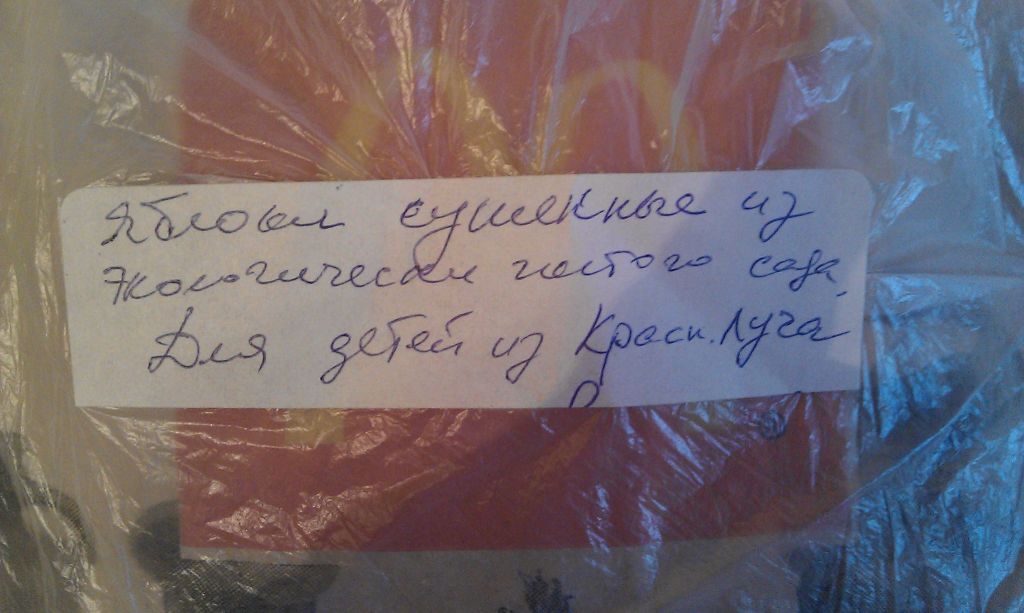 Яблоки сушенные из
экологически чистого сада.
Для детей из Красн. Луча